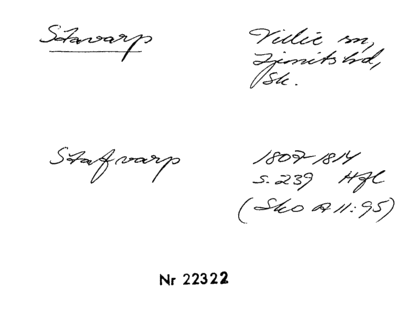 Stavarp
Villie sn,
Ljunits hd,
Sk.
Stafvarp
1807-1814
s. 239 Hfl
(Sko A II:95)
Nr 22322